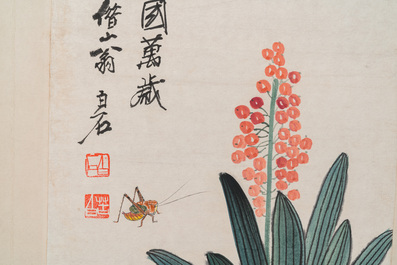 國萬歲
借山翁
白石